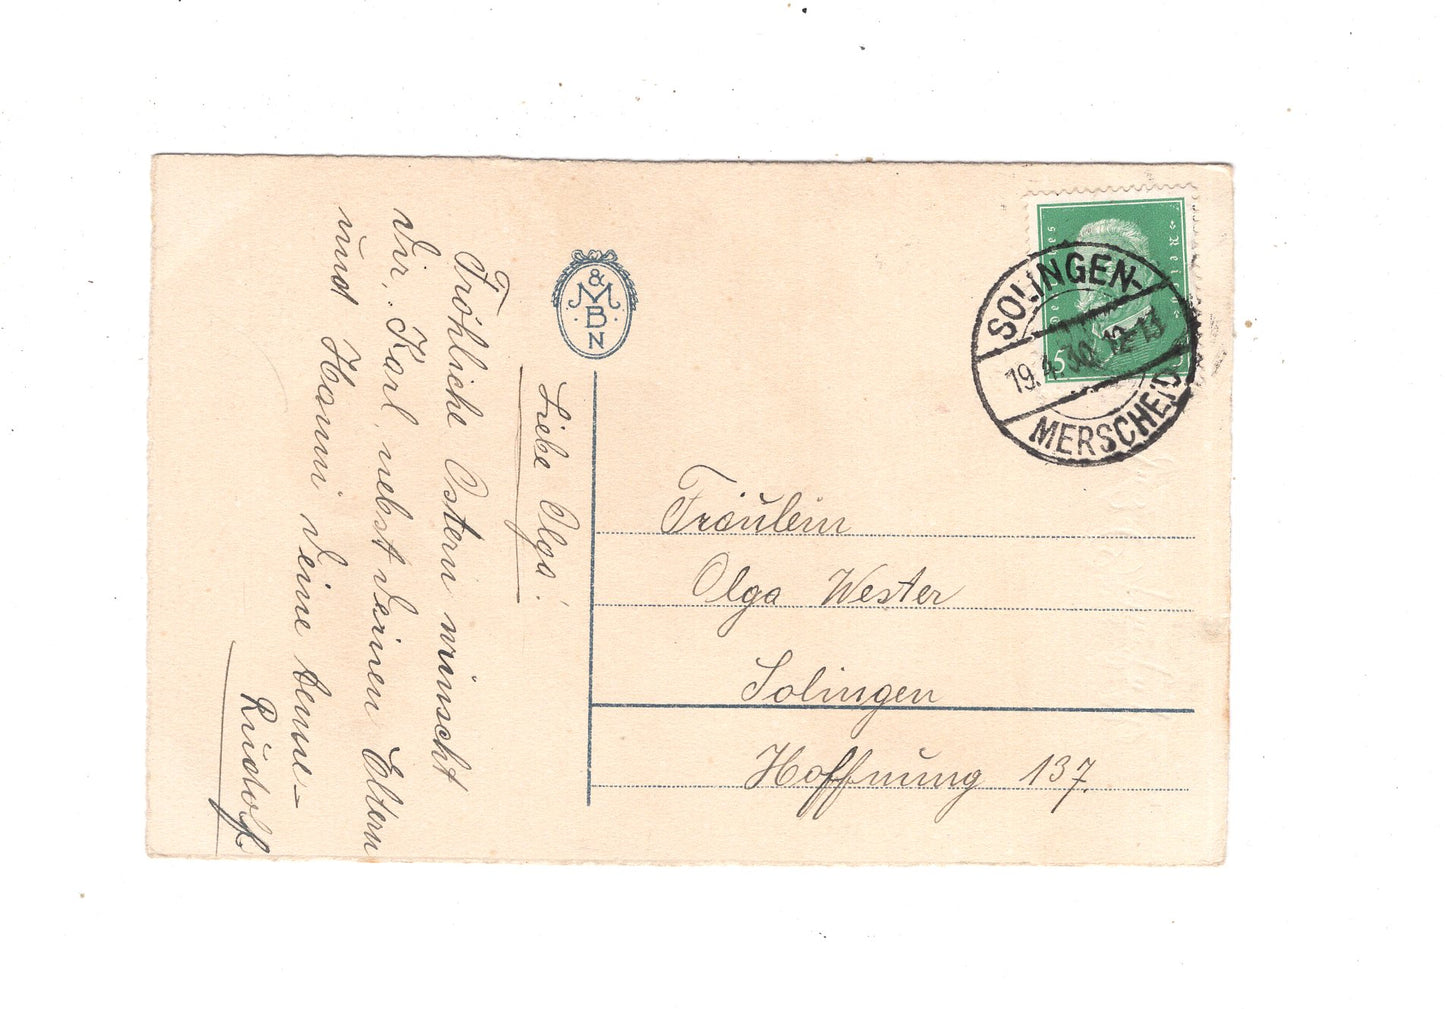 Liebe Olga!
Fröhliche Ostern wünscht
Dir, Karl, nebst Deinen Eltern
und Hanni Deine
Rudolf.
& M B N
Deutsches Reich
5
SOLINGEN-
19.4.30. 12-13
MERSCHEID
Fräulein
Olga Wester
Solingen
Hoffnung 137.